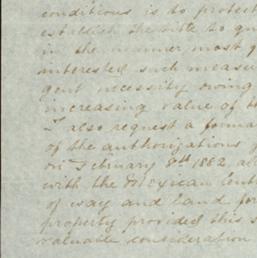 conditions is to protect
establish the title to
in the manner most
interested such measu
gent necessity owing
increasing value of
I also request a forma
of the authorizations
on February 8th 1882
with the Mexican Cent
of way and land for
property provided this
valuable consideration